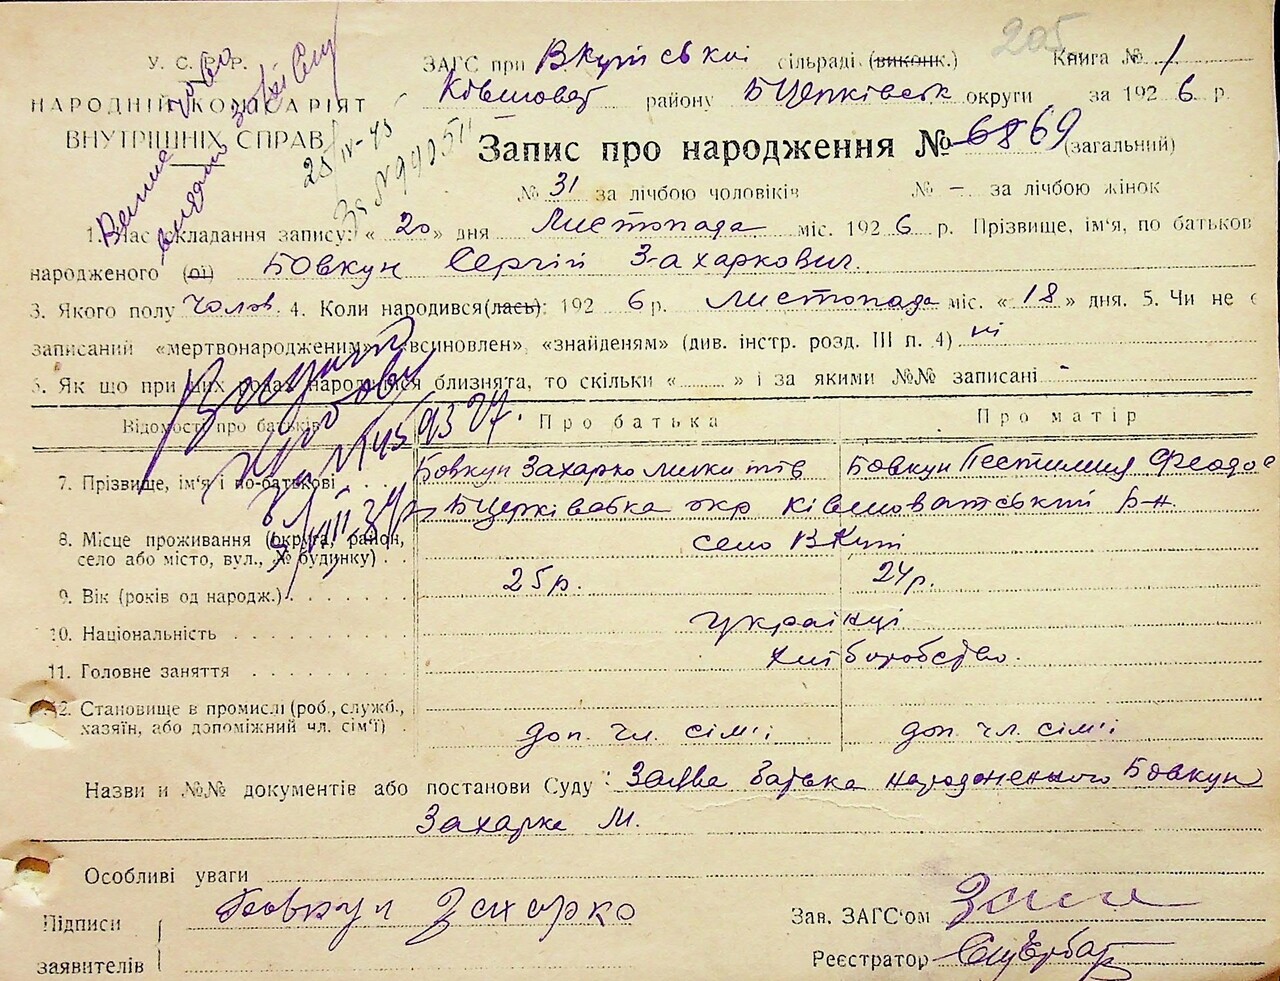 205
У. С. Р. Р.
НАРОДНІЙ КОМІСАРІЯТ
ВНУТРІШНІХ СПРАВ
ЗАГС при Вкутській сільраді (виконк.) Книга № 1
Ківшоват району БЦерківськ округи за 1926 р.
25/IV-45
Запис про народження № 6869 (загальний)
№ 31 за лічбою чоловіків № – за лічбою жінок
1. Час складання запису: « 20 » дня Листопада міс. 1926 р. Прізвище, ім'я, по батьков
народженого (ої) Бовкун Сергій Захаркович.
3. Якого полу Чолов. 4. Коли народився(лась): 1926 р. Листопада міс. « 18 » дня. 5. Чи не є
записаний «мертвонародженим», «всиновлен», «знайденям» (див. інстр. розд. III п. 4) ні
6. Як що при цих родах народилися близнята, то скільки « » і за якими №№ записані -
Відомості про батьків Про батька Про матір
7. Прізвище, ім'я і по-батькові Бовкун Захарко Бовкун
БЦерківська окр Ківшоватський Р-н.
8. Місце проживання (округа, район,
село або місто, вул., № будинку) село ВКути
9. Вік (років од народж.) 25р. 24р.
10. Національність українці
11. Головне заняття хліборобство.
12. Становище в промислі (роб., служб.,
хазяїн, або допоміжний чл. сім'ї) доп. чл. сім'ї доп. чл. сім'ї
Назви и №№ документів або постанови Суду: Заява батька народженного Бовкун
Захарка М.
Особливі уваги
Підписи Бовкун Захарко Зав. ЗАГС'ом
заявителів Реєстратор